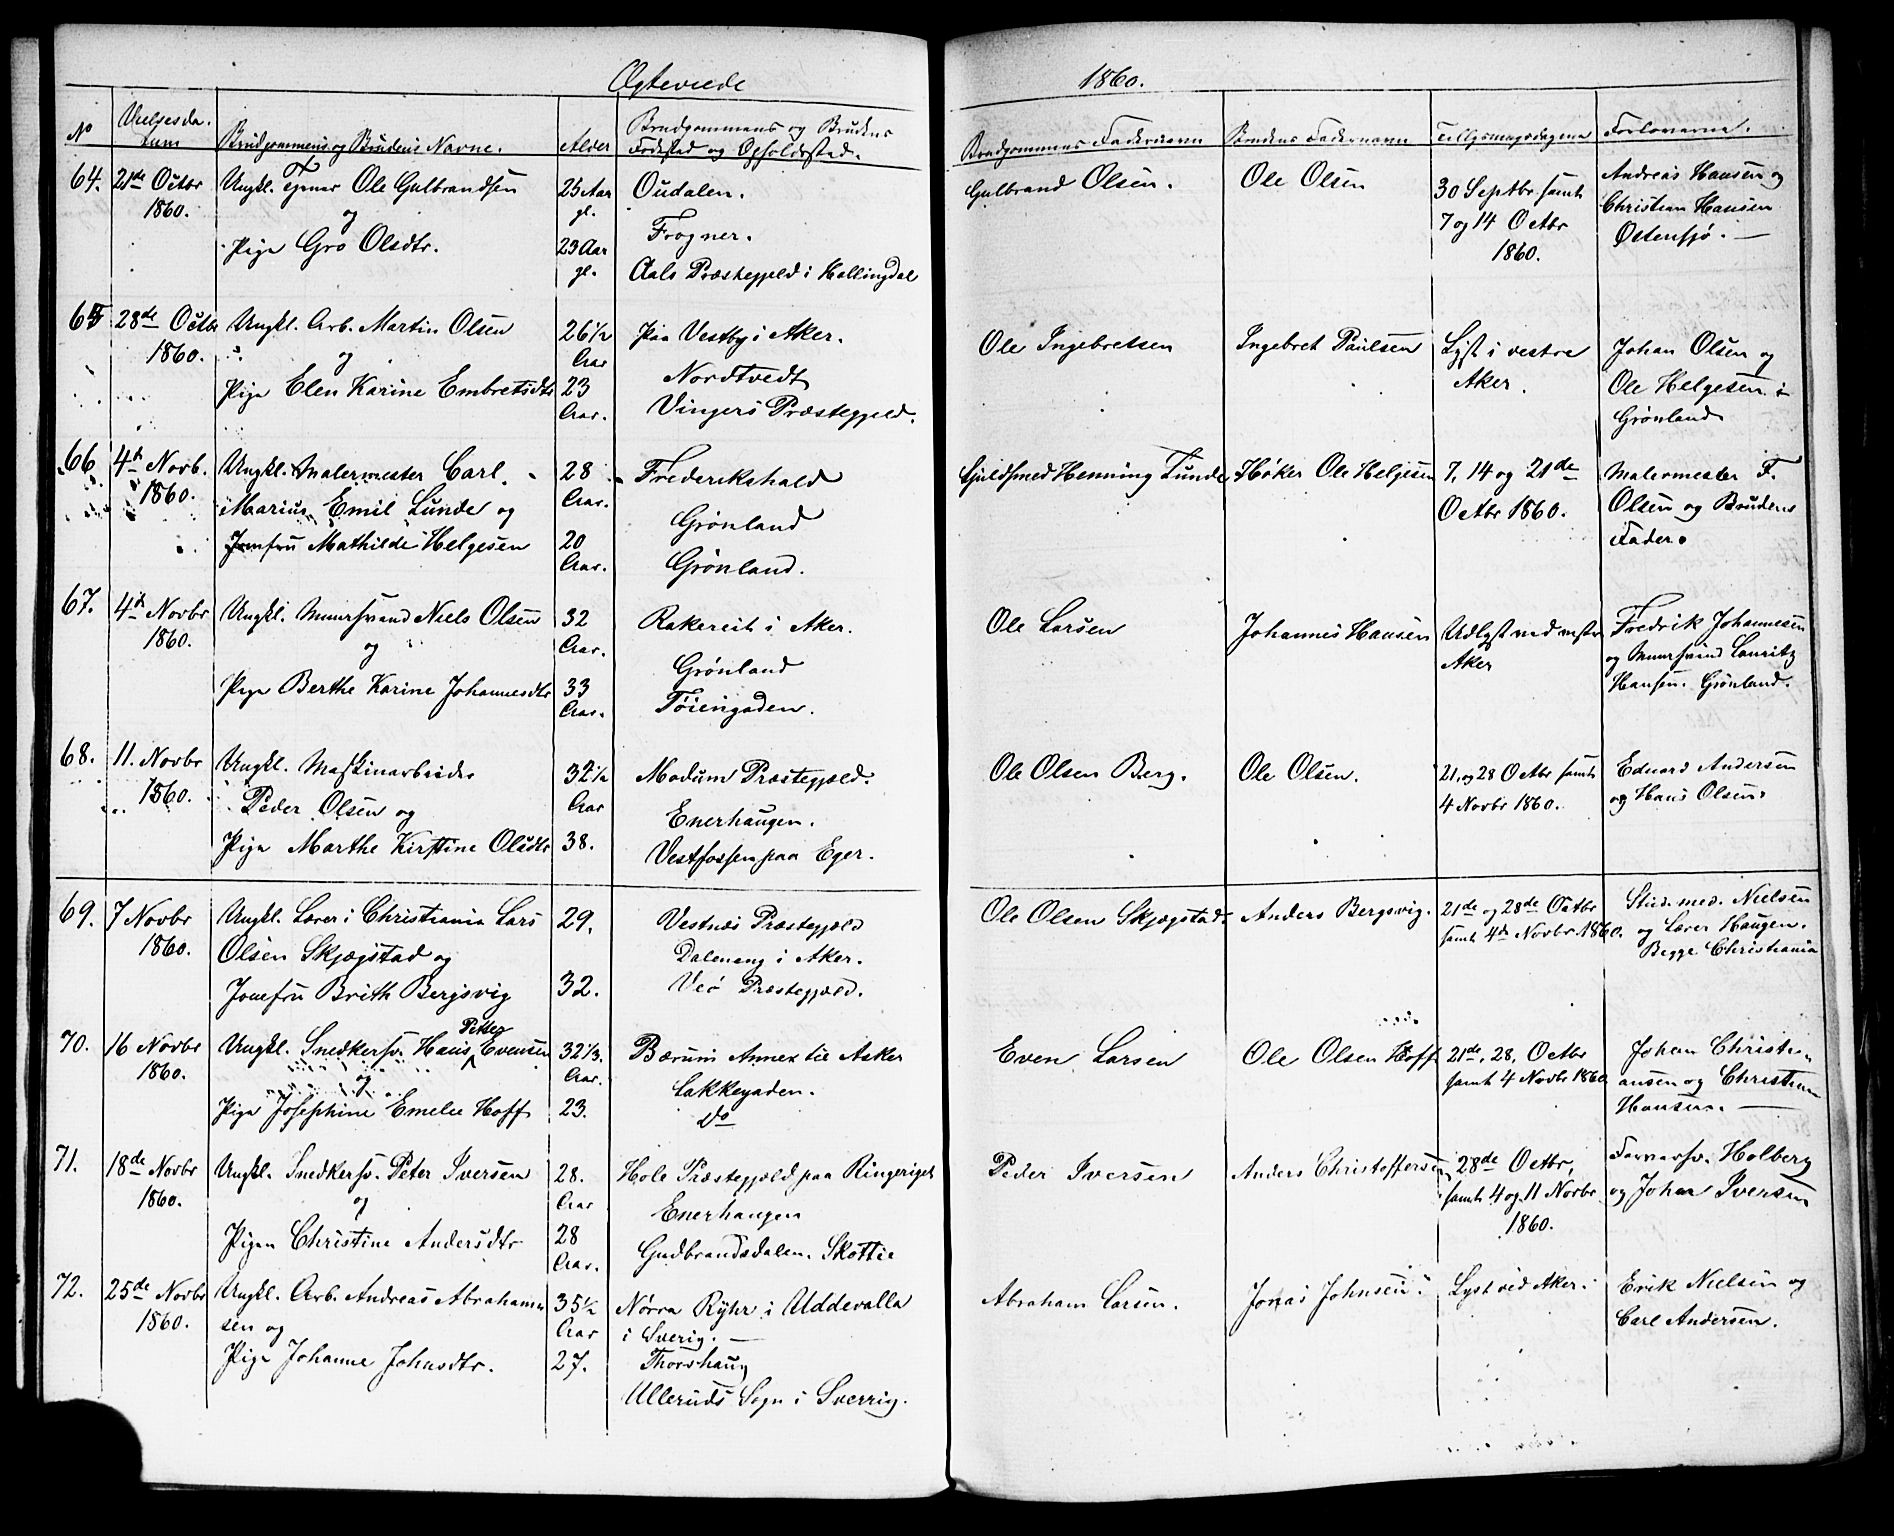 Ægteviede 1860.
No
Vielsesda-
tum
Brudgommens og Brudens Navne.
Alder
Brudgommens og Brudens
Fødested og Opholdssted.
Brudgommens Fadernavn
Brudens Fadernavn
Tillysningsdagene
Forloverne.
64.
21de Octbr
1860.
Ungkl. Tjener Ole Gulbrandsen
og
Pige Gro Olsdtr.
25 Aar
gl.
23 Aar
gl.
Oudalen.
Frogner.
Aals Præstegjeld i Hallingdal
Gulbrand Olsen.
Ole Olsen
30 Septbr samt
7 og 14 Octbr
1860.
Andreas Hansen og
Christian Hansen
Østensjø.
65
28de Octbr
1860.
Ungkl. Arb. Martin Olsen
og
Pige Elen Karine Embretsdtr
26 1/2
Aar
23
Aar.
Paa Vestby i Aker.
Nordtvedt
Vingers Præstegjeld.
Ole Ingebretsen
Ingebret Paulsen
Lyst i vestre
Aker.
Johan Olsen og
Ole Helgesen i
Grønland
66
4de Novb.
1860.
Ungkl. Malermester Carl
Marius Emil Lunde og
Jomfru Mathilde Helgesen
28
Aar.
20
Aar.
Frederikshald
Grønland
Grønland.
Guldsmed Henning Lunde
Høker Ole Helgesen
7, 14 og 21de
Octbr 1860.
Malermester F.
Olsen og Brudens
Fader.
67.
4de Novbr
1860.
Ungkl. Muursvend Niels Olsen
og
Pige Berthe Karine Johannesdtr
32
Aar.
33
Aar.
Rakereit i Aker.
Grønland
Tøiengaden.
Ole Larsen
Johannes Hansen
Udlyst ved vestre
Aker
Fredrik Johannesen
og Muursvend Lauritz
Hansen. Grønland.
68.
11. Novbr
1860.
Ungkl. Maskinarbeider
Peder Olsen og
Pige Marthe Kirstine Olsdtr
32 1/2
Aar
38.
Modum Præstegjæld.
Enerhaugen.
Vestfossen paa Eger.
Ole Olsen Berg.
Ole Olsen.
21, og 28 Octbr samt
4 Novbr 1860.
Eduard Andersen
og Hans Olsen.
69.
7 Novbr
1860.
Ungkl. Lærer i Christiania Lars
Olsen Skjægstad og
Jomfru Brith Bergsvig
29.
32.
Vestnæs Præstegjæld
Daleneng i Aker.
Veø Præstegjæld.
Ole Olsen Skjægstad.
Anders Bergsvig.
21de og 28de Octbr
samt 4de Novbr 1860.
Stud. med. Nielsen
og Lærer Haugen.
Begge Christiania
70.
16 Novbr
1860.
Petter
Ungkl. Snedkersv. Hans Evensen
og
Pige Josephine Emelie Hoff
32 1/3.
Aar.
23.
Bærums Annex til Asker
Lakkegaden.
do
Even Larsen
Ole Olsen Hoff
21de, 28, Octbr
samt 4 Novbr 1860
Johan Christian
ansen og Christian
Hansen.
71.
18de Novbr
1860.
Ungkl. Snedkersv. Peter Iversen
og
Pigen Christine Andersdtr
28.
Aar
28
Aar.
Hole Præstegjæld paa Ringeriget
Enerhaugen
Gudbrandsdalen.
Peder Iversen
Anders Christoffersen
28de Octbr,
samt 4 og 11 Novbr
1860.
Farversv. Holberg
og Johan Iversen
72.
25de Novbr
1860.
Ungkl. Arb. Andreas Abraham
sen og
Pige Johanne Johnsdtr.
35 1/2
Aar
27.
Nørra Ryhr i Uddevalla
i Sverig.
Thorshaug
Ulleruds Sogn i Sverrig.
Abraham Larsen.
Jonas Johnsen.
Lyst ved Aker.
Erik Nielsen og
Carl Andersen.